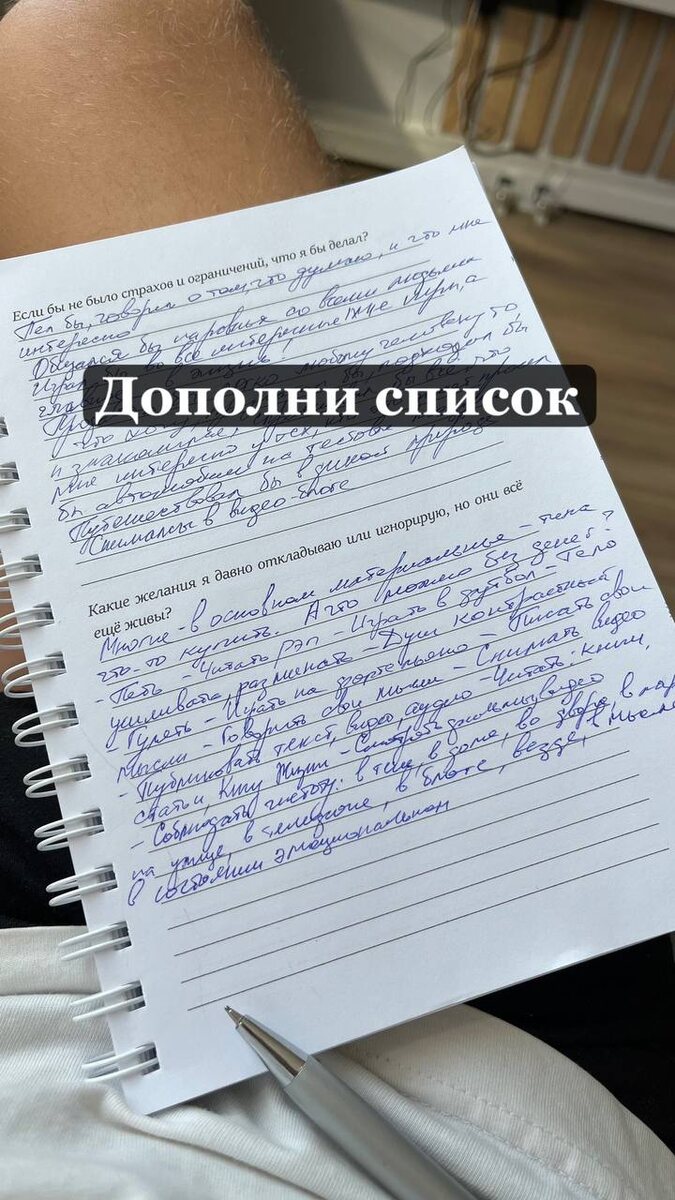 Если бы не было страхов и ограничений, что я бы делал?
Пел бы, говорил о том, что думаю, и что мне
интересно
Общался бы на равных со всеми людьми
Играл бы во все интересные мне игры, а
главное в жизнь!
любому человеку
Дополни список
и знакомился,
мне интересно
бы автомобили на тестовые
Путешествовал бы в дикой природе
Снимался в видео-блоге
Какие желания я давно откладываю или игнорирую, но они всё
ещё живы?
Многие - в основном материальные - типа
что-то купить. А что можно без денег?
- Петь - Читать рэп - Играть в футбол - Тело
усиливать, разминать - Душ контрастный
- Гулять - Играть на фортепьяно - Писать свои
мысли - Говорить свои мысли - Снимать видео
- Публиковать текст, видео, аудио - Читать: книги,
статьи, Книгу Жизни - Смотреть видео
- Соблюдать чистоту: в теле, в доме, во дворе, в
на улице, в телефоне, в блоге, везде, в
в состоянии эмоциональном